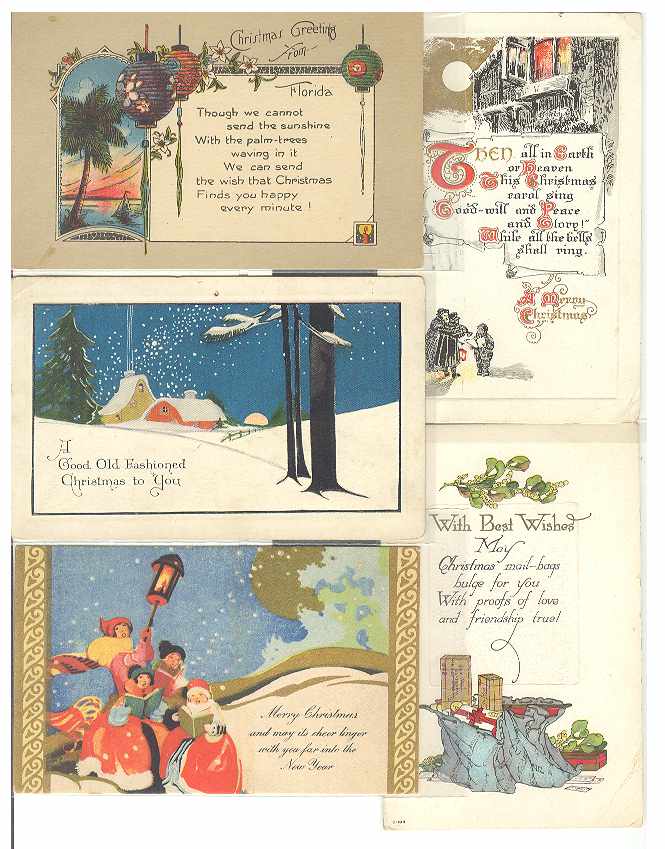 Christmas Greeting
From
Florida
Though we cannot
send the sunshine
With the palm-trees
waving in it
We can send
the wish that Christmas
Finds you happy
every minute!
Then all in Earth
or Heaven
This Christmas
carol sing
"Good-will and Peace
and Glory!"
While all the bells
shall ring.
A Merry
Christmas
A
Good Old Fashioned
Christmas to You
With Best Wishes
May
Christmas mail-bags
bulge for you
With proofs of love
and friendship true!
Merry Christmas
and may its cheer linger
with you far into the
New Year